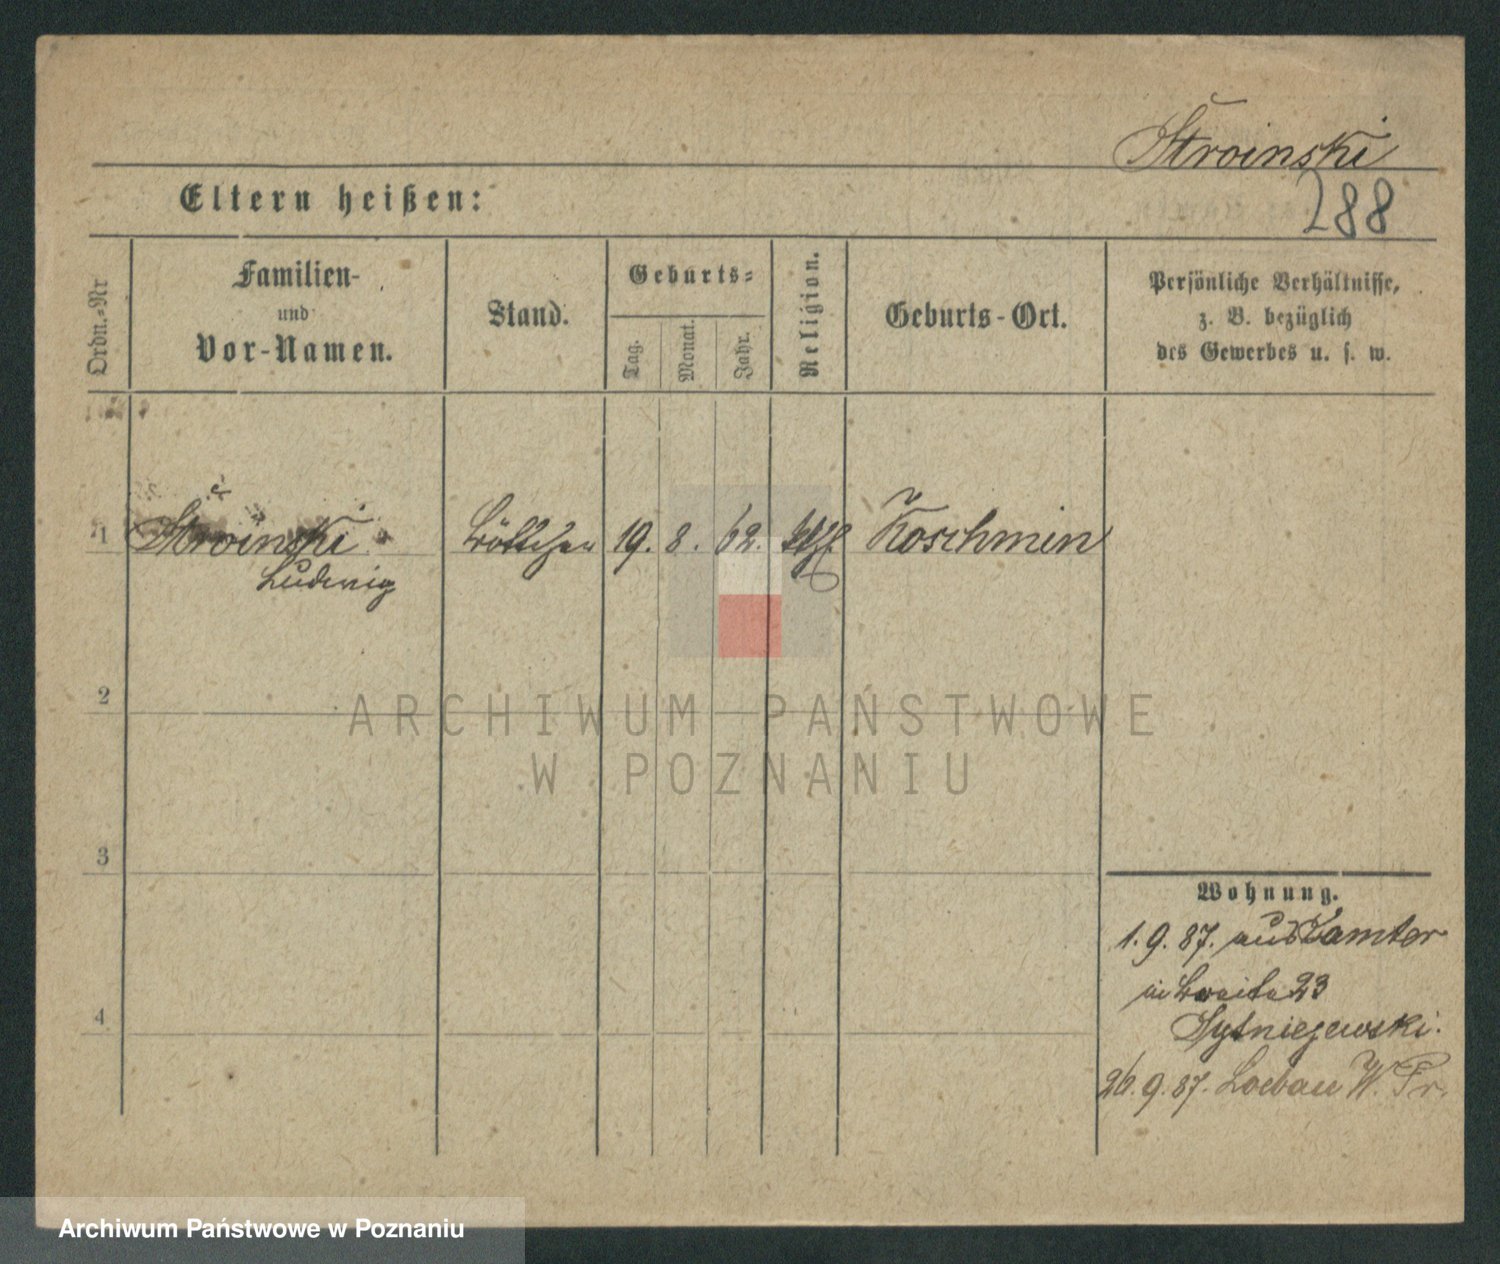 Stroinski
288
Eltern heißen:
Ordn.-Nr
Familien-
und
Vor-Namen.
Stand.
Geburts-
Tag.
Monat.
Jahr.
Religion.
Geburts-Ort.
Persönliche Verhältnisse,
z. B. bezüglich
des Gewerbes u. s. w.
1 Stroinski Böttcher 19. 8. 62. Koschmin
Ludwig
2
ARCHIWUM PAŃSTWOWE
W POZNANIU
3
Wohnung.
1. 9. 87. aus Samter
in Breite 23
Sytniejewski.
4
26. 9. 87. Loebau W. Pr.
Archiwum Państwowe w Poznaniu